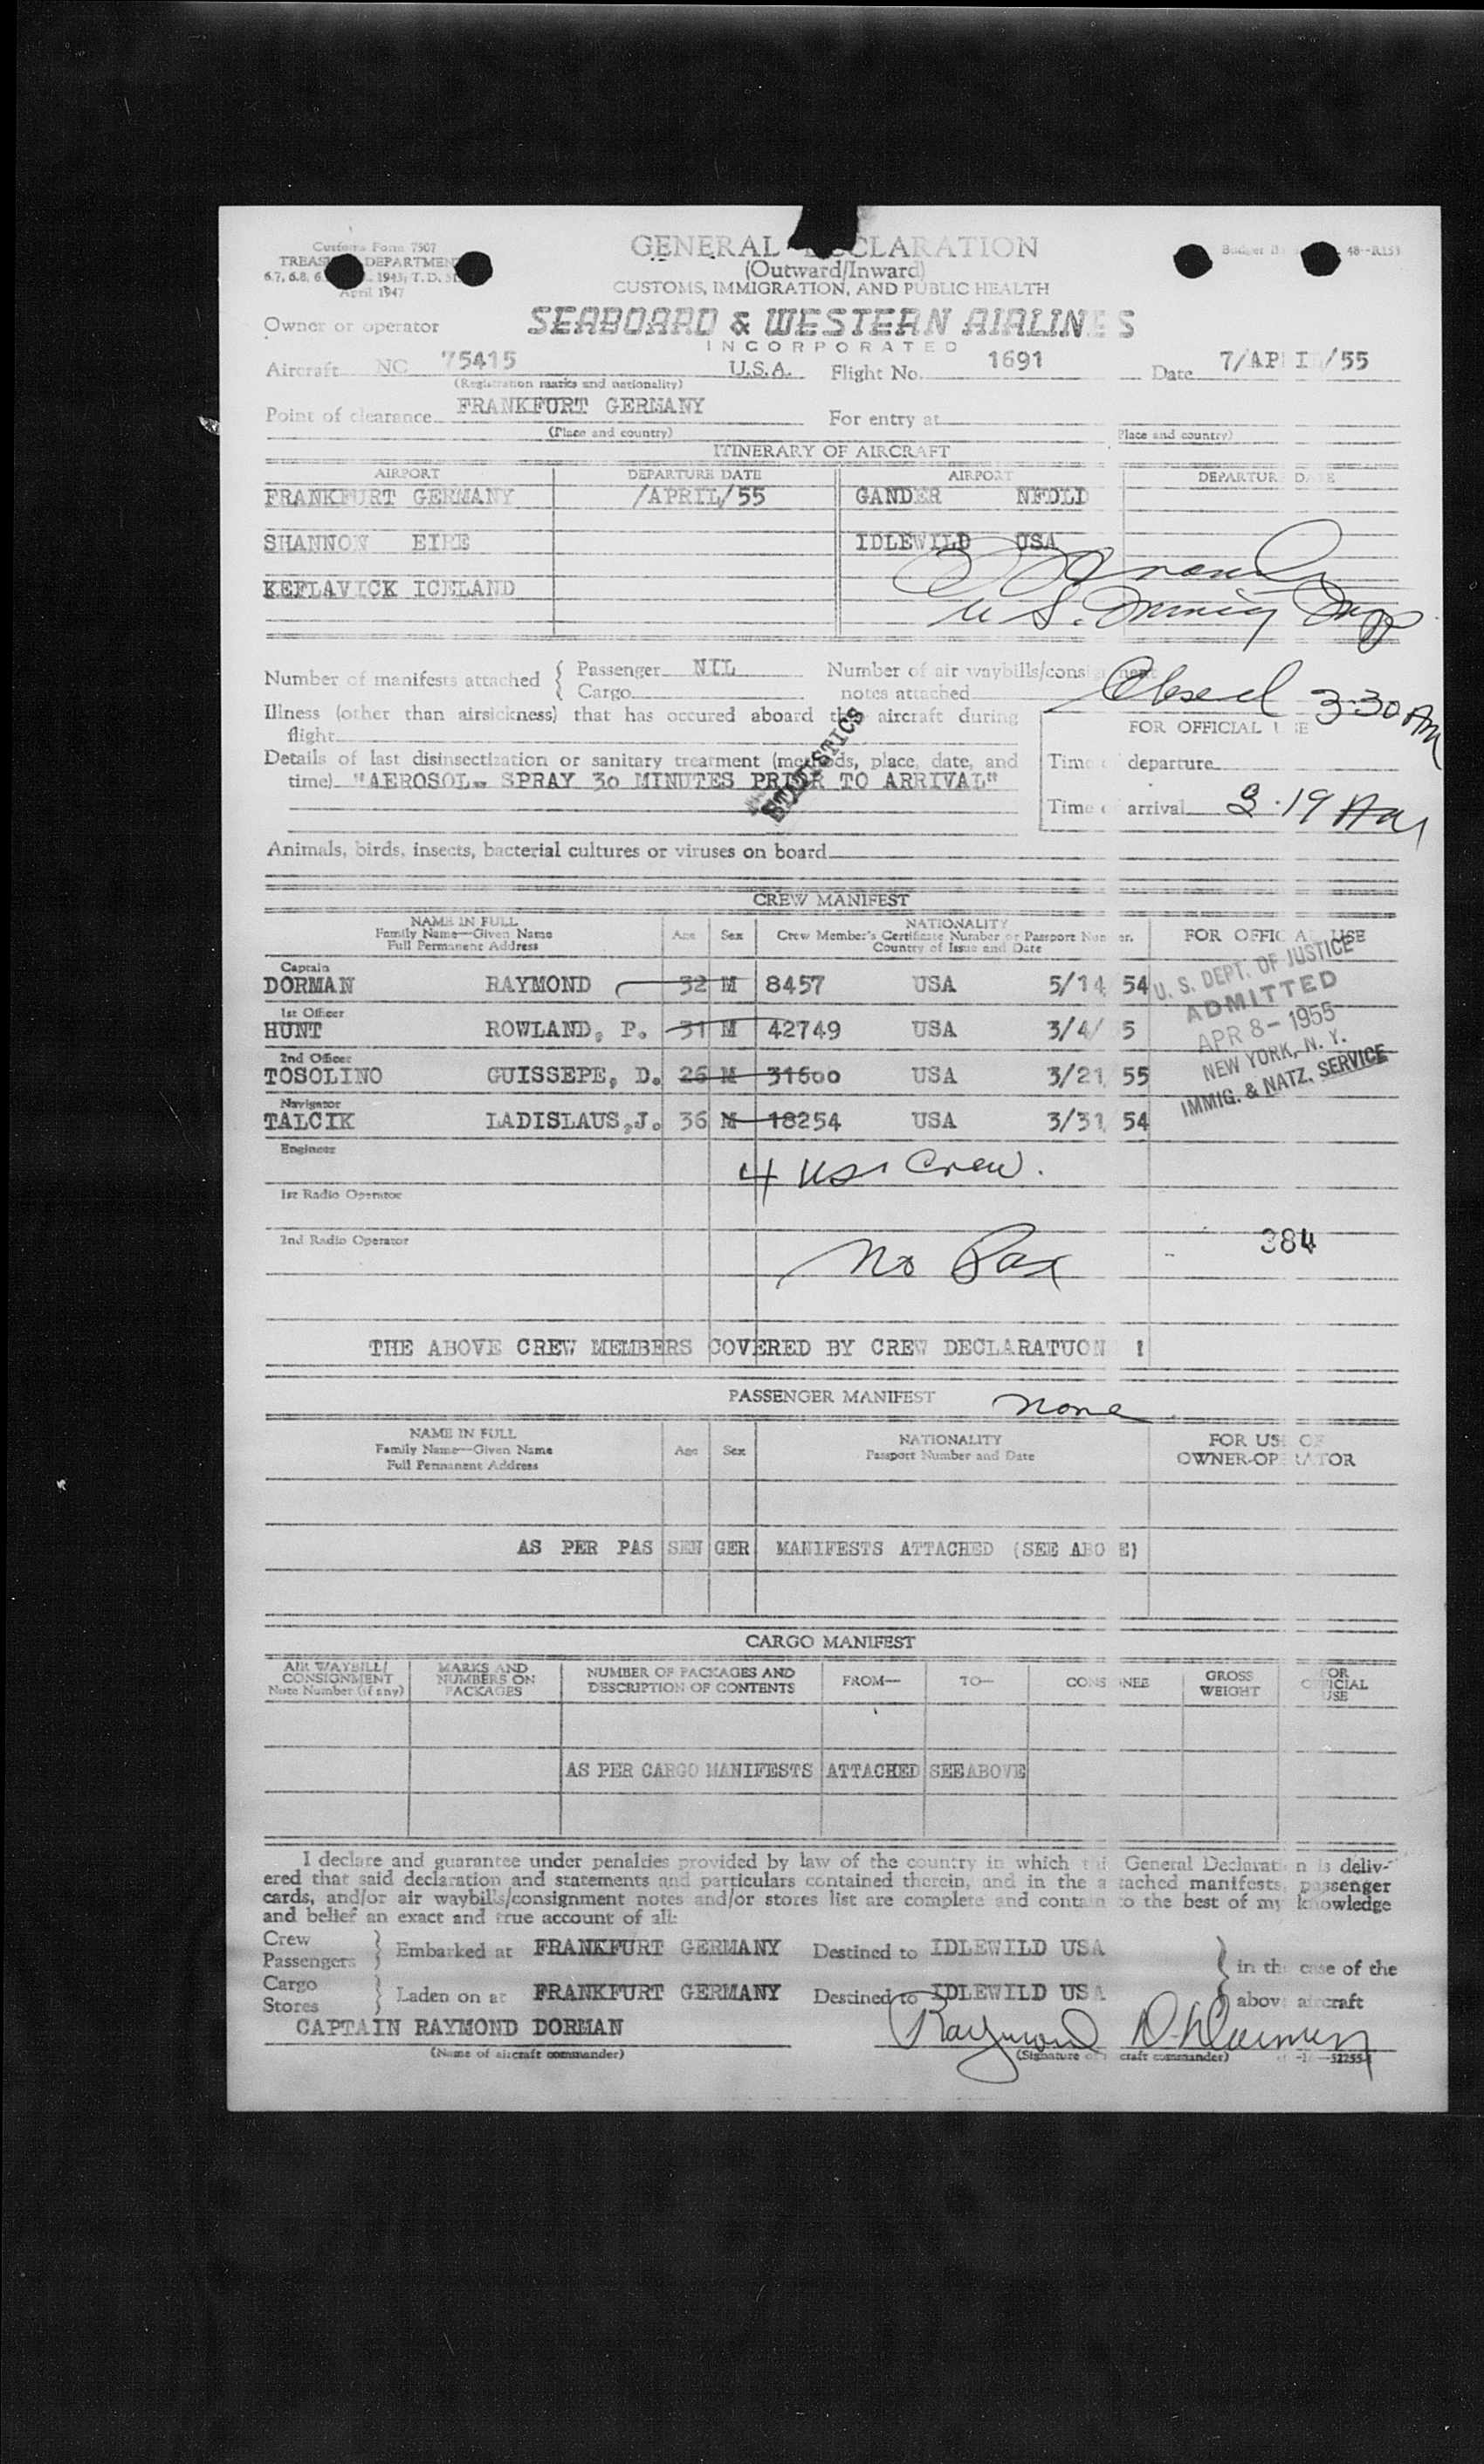 Customs Form 7507
GENERAL DECLARATION
TREASURY DEPARTMENT
(Outward/Inward)
April 1947
CUSTOMS, IMMIGRATION, AND PUBLIC HEALTH
Owner or operator SEABOARD & WESTERN AIRLINES
INCORPORATED
Aircraft NC 75415 U.S.A. Flight No. 1691 Date 7/APRIL/55
(Registration marks and nationality)
Point of clearance FRANKFURT GERMANY For entry at
(Place and country) Place and country)
ITINERARY OF AIRCRAFT
AIRPORT DEPARTURE DATE AIRPORT DEPARTURE DATE
FRANKFURT GERMANY /APRIL/55 GANDER NFDLD
SHANNON EIRE IDLEWILD USA
KEFLAVICK ICELAND
U S. Immig Insp
Number of manifests attached { Passenger NIL Number of air waybills/consignment
Cargo notes attached
Closed 3:30 AM
Illness (other than airsickness) that has occured aboard the aircraft during
flight
FOR OFFICIAL USE
Details of last disinsectization or sanitary treatment (methods, place, date, and
time) "AEROSOL- SPRAY 30 MINUTES PRIOR TO ARRIVAL"
STATISTICS
Time of departure
Time of arrival 3.19 AM
Animals, birds, insects, bacterial cultures or viruses on board
CREW MANIFEST
NAME IN FULL
Family Name—Given Name
Full Permanent Address
Age Sex
NATIONALITY
Crew Member's Certificate Number or Passport Number.
Country of Issue and Date
FOR OFFICIAL USE
Captain
DORMAN RAYMOND 32 M 8457 USA 5/14 54
1st Officer
HUNT ROWLAND, P. 31 M 42749 USA 3/4/ 5
2nd Officer
TOSOLINO GUISSEPE, D. 26 M 31600 USA 3/21 55
Navigator
TALCIK LADISLAUS,J. 36 M 18254 USA 3/31 54
U. S. DEPT. OF JUSTICE
ADMITTED
APR 8- 1955
NEW YORK, N. Y.
IMMIG. & NATZ. SERVICE
Engineer
4 usc Crew.
1st Radio Operator
2nd Radio Operator
No Pax
384
THE ABOVE CREW MEMBERS COVERED BY CREW DECLARATUON !
PASSENGER MANIFEST None
NAME IN FULL
Family Name—Given Name
Full Permanent Address
Age Sex
NATIONALITY
Passport Number and Date
FOR USE OF
OWNER-OPERATOR
AS PER PAS SEN GER MANIFESTS ATTACHED (SEE ABO E)
CARGO MANIFEST
AIR WAYBILL/
CONSIGNMENT
Note Number (if any)
MARKS AND
NUMBERS ON
PACKAGES
NUMBER OF PACKAGES AND
DESCRIPTION OF CONTENTS
FROM—
TO—
CONSIGNEE
GROSS
WEIGHT
FOR
OFFICIAL
USE
AS PER CARGO MANIFESTS ATTACHED SEE ABOVE
I declare and guarantee under penalties provided by law of the country in which this General Declaration is deliv-
ered that said declaration and statements and particulars contained therein, and in the attached manifests, passenger
cards, and/or air waybills/consignment notes and/or stores list are complete and contain to the best of my knowledge
and belief an exact and true account of all:
Crew
Passengers } Embarked at FRANKFURT GERMANY Destined to IDLEWILD USA
Cargo
Stores } Laden on at FRANKFURT GERMANY Destined to IDLEWILD USA
} in the case of the
above aircraft
CAPTAIN RAYMOND DORMAN Raymond D. Dorman
(Name of aircraft commander) (Signature of aircraft commander)